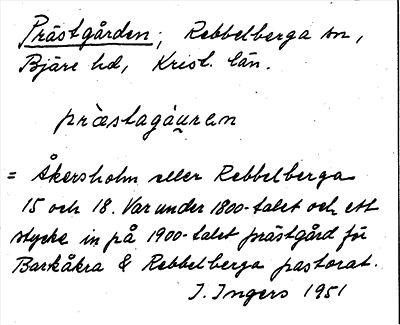 Prästgården, Rebbelberga sn,
Bjäre hd, Krist. län.
præstagáu̯ren
= Åkersholm eller Rebbelberga
15 och 18. Var under 1800-talet och ett
stycke in på 1900-talet prästgård för
Barkåkra & Rebbelberga pastorat.
I. Ingers 1951